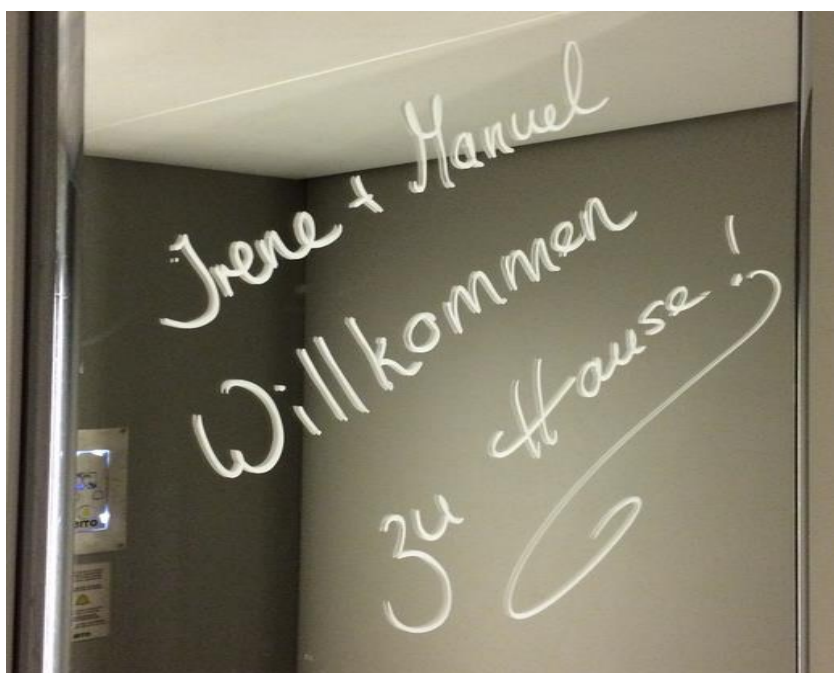 Irene + Manuel
Willkommen
zu Hause!